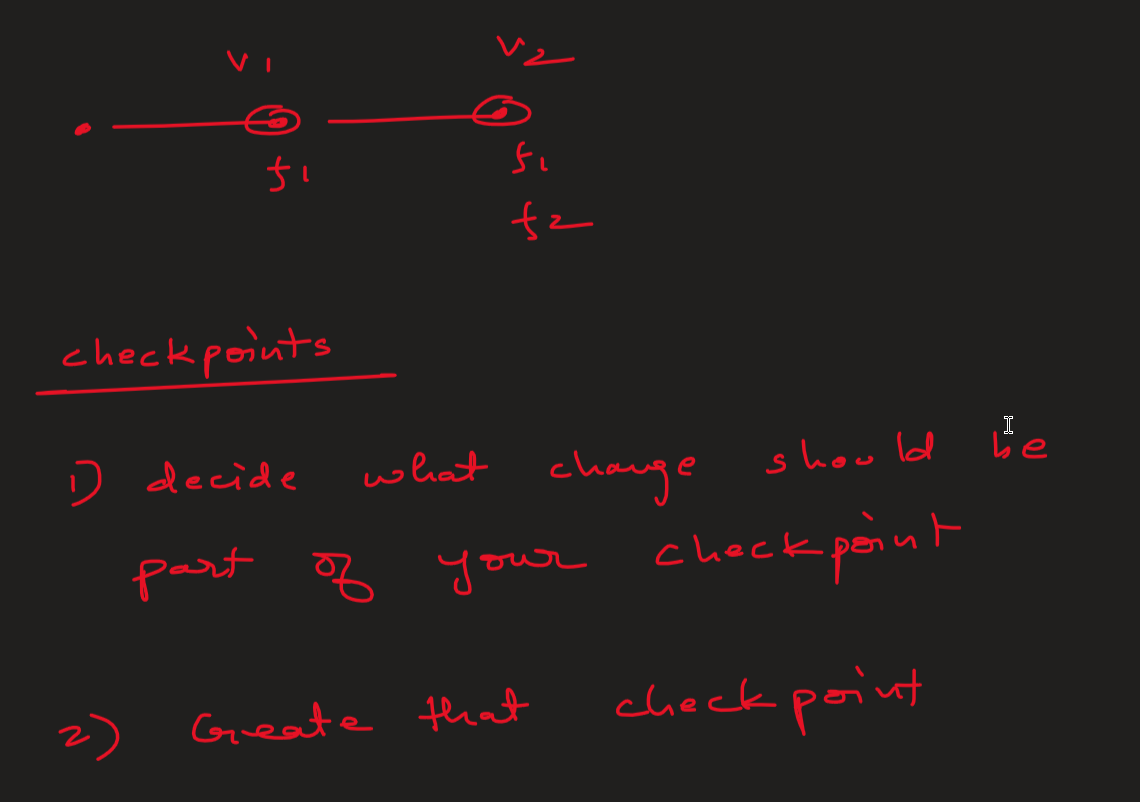 v1 v2
f1 f1
f2
checkpoints
1) decide what change should be
part of your checkpoint
2) Create that checkpoint